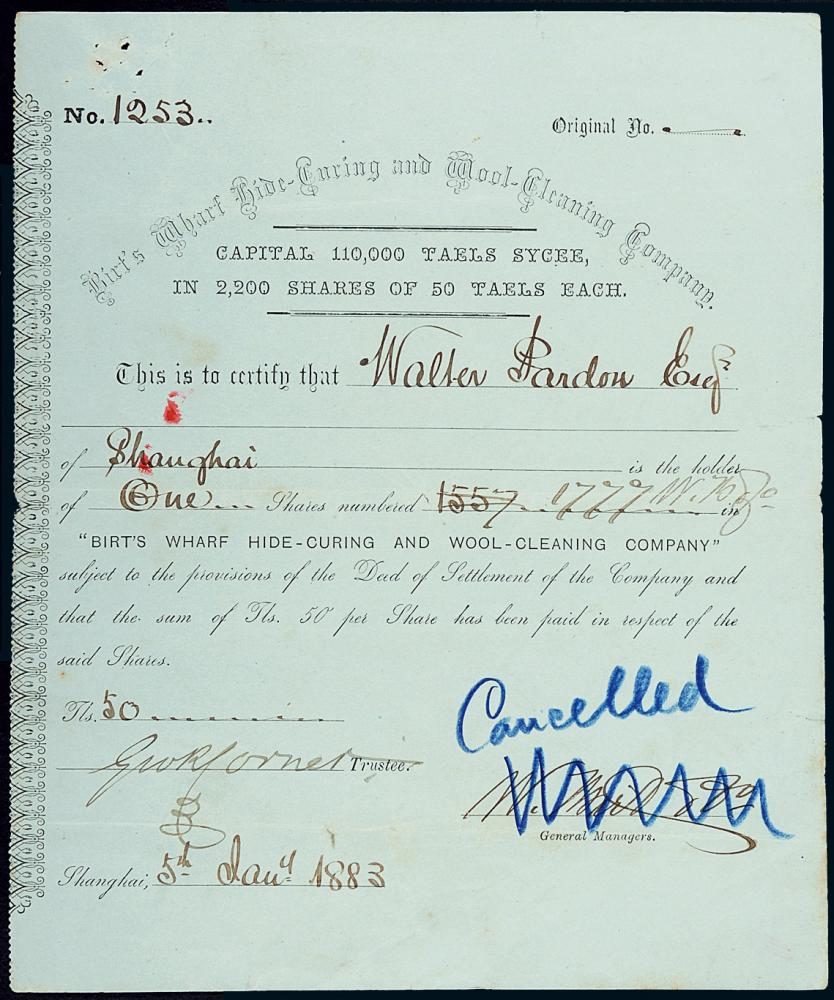 No. 1253..
Original No.
Birt's Wharf Hide-Curing and Wool-Cleaning Company.
CAPITAL 110,000 TAELS SYCEE,
IN 2,200 SHARES OF 50 TAELS EACH.
This is to certify that Walter Pardon Esqr
of Shanghai is the holder
of One Shares numbered 1557 1777 in
"BIRT'S WHARF HIDE-CURING AND WOOL-CLEANING COMPANY"
subject to the provisions of the Deed of Settlement of the Company and
that the sum of Tls. 50 per Share has been paid in respect of the
said Shares.
Cancelled
Tls. 50
Trustee.
General Managers.
Shanghai, 5th Jany 1883